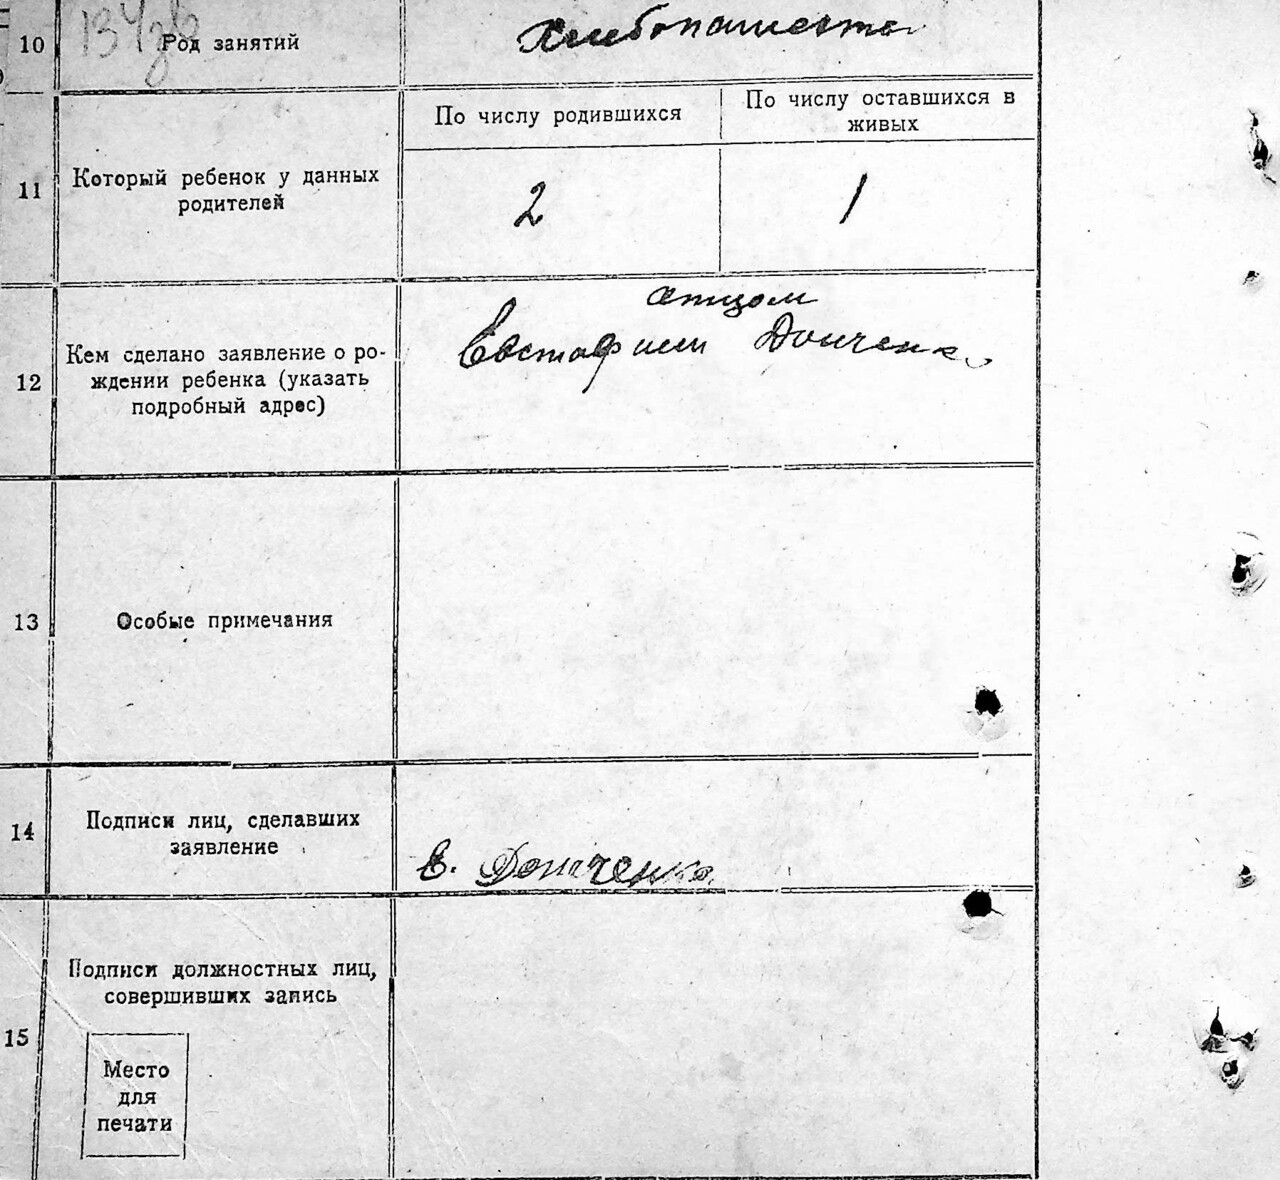 10 Род занятий Хлебопашество
По числу родившихся По числу оставшихся в
живых
11 Который ребенок у данных
родителей
2 1
отцом
12 Кем сделано заявление о ро-
ждении ребенка (указать
подробный адрес)
Евстафием Донченко
13 Особые примечания
14 Подписи лиц, сделавших
заявление
Е. Донченко
15 Подписи должностных лиц,
совершивших запись
Место
для
печати